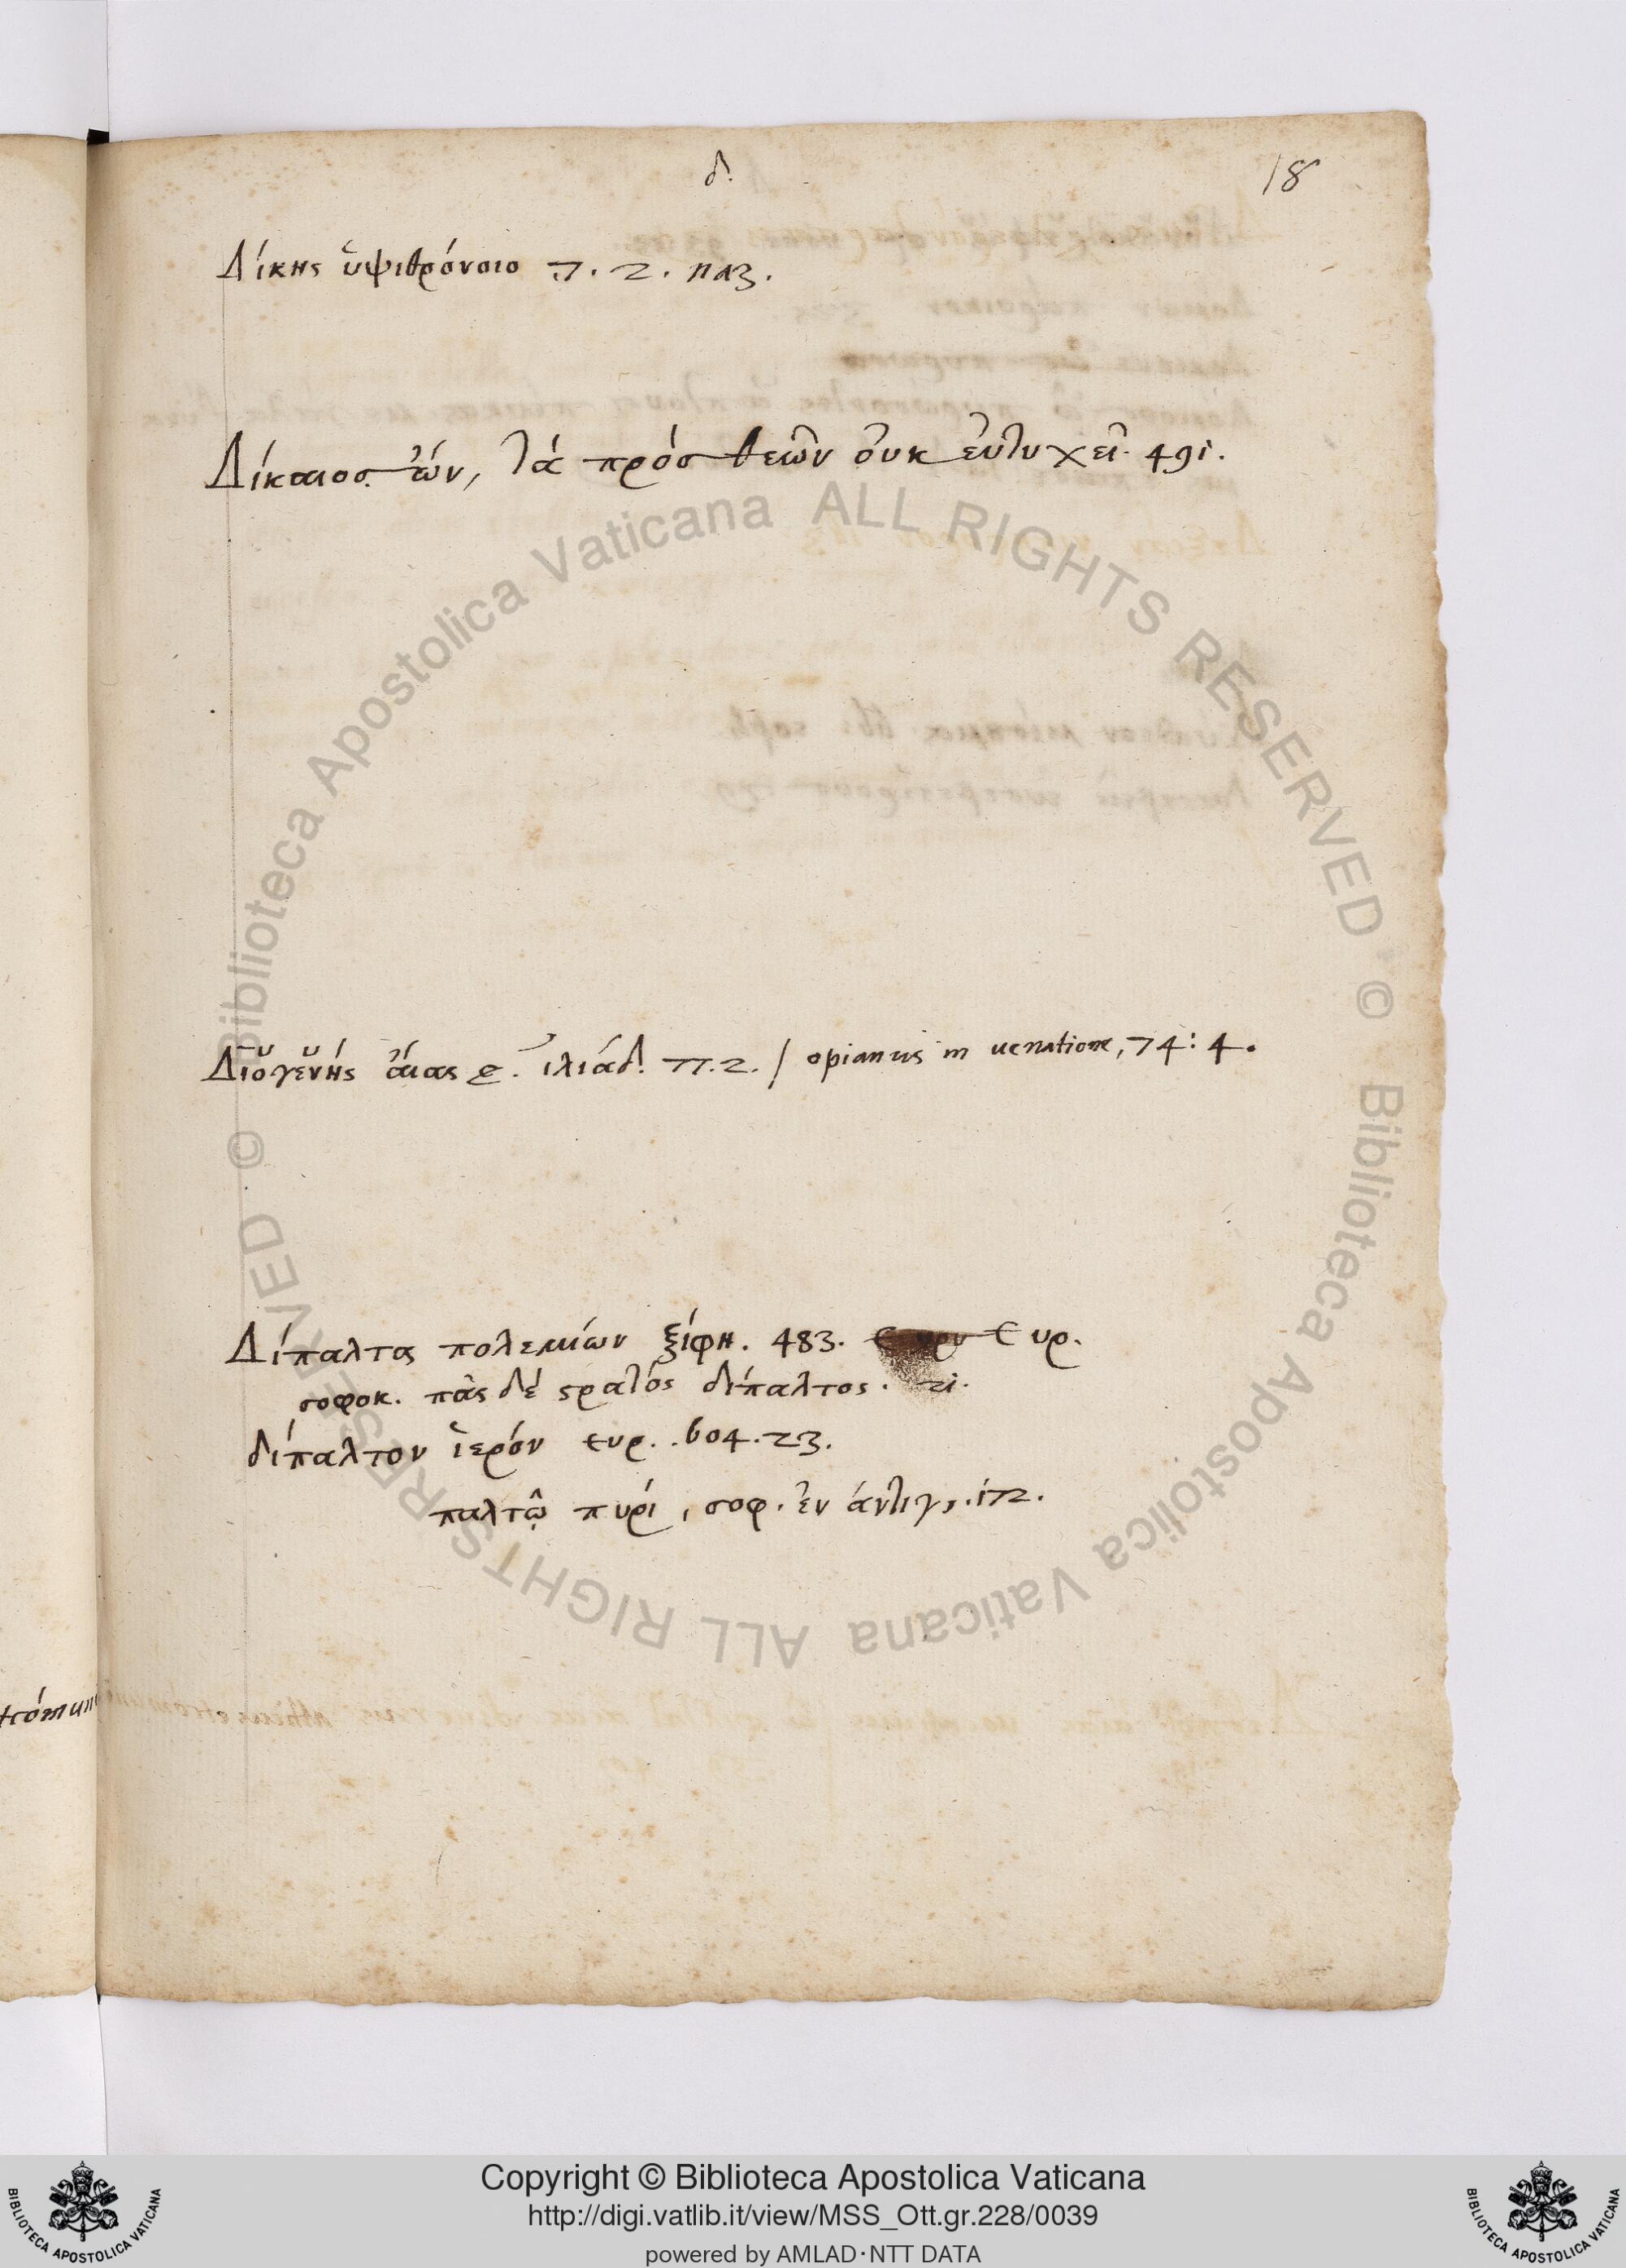 δ.
18
Δίκης ὑψιθρόνοιο 7. 2. παζ.
Δίκαιος ὤν, τά πρός θεῶν οὐκ εὐτυχεῖ. 491.
Διογενής ἄιας ε. ἰλιάδ. 77.2. / opianus in uenatione, 74: 4.
Δίπαλτα πολεμίων ξίφη. 483. Ευρ.
σοφοκ. πᾶς δέ στρατός δίπαλτος. 21.
δίπαλτον ἱερόν ευρ. .604.23.
παλτῷ πυρί, σοφ. ἐν ἀντιγ. .172.
© Biblioteca Apostolica Vaticana ALL RIGHTS RESERVED
© Biblioteca Apostolica Vaticana ALL RIGHTS RESERVED
Copyright © Biblioteca Apostolica Vaticana
http://digi.vatlib.it/view/MSS_Ott.gr.228/0039
powered by AMLAD·NTT DATA
BIBLIOTECA APOSTOLICA VATICANA
BIBLIOTECA APOSTOLICA VATICANA